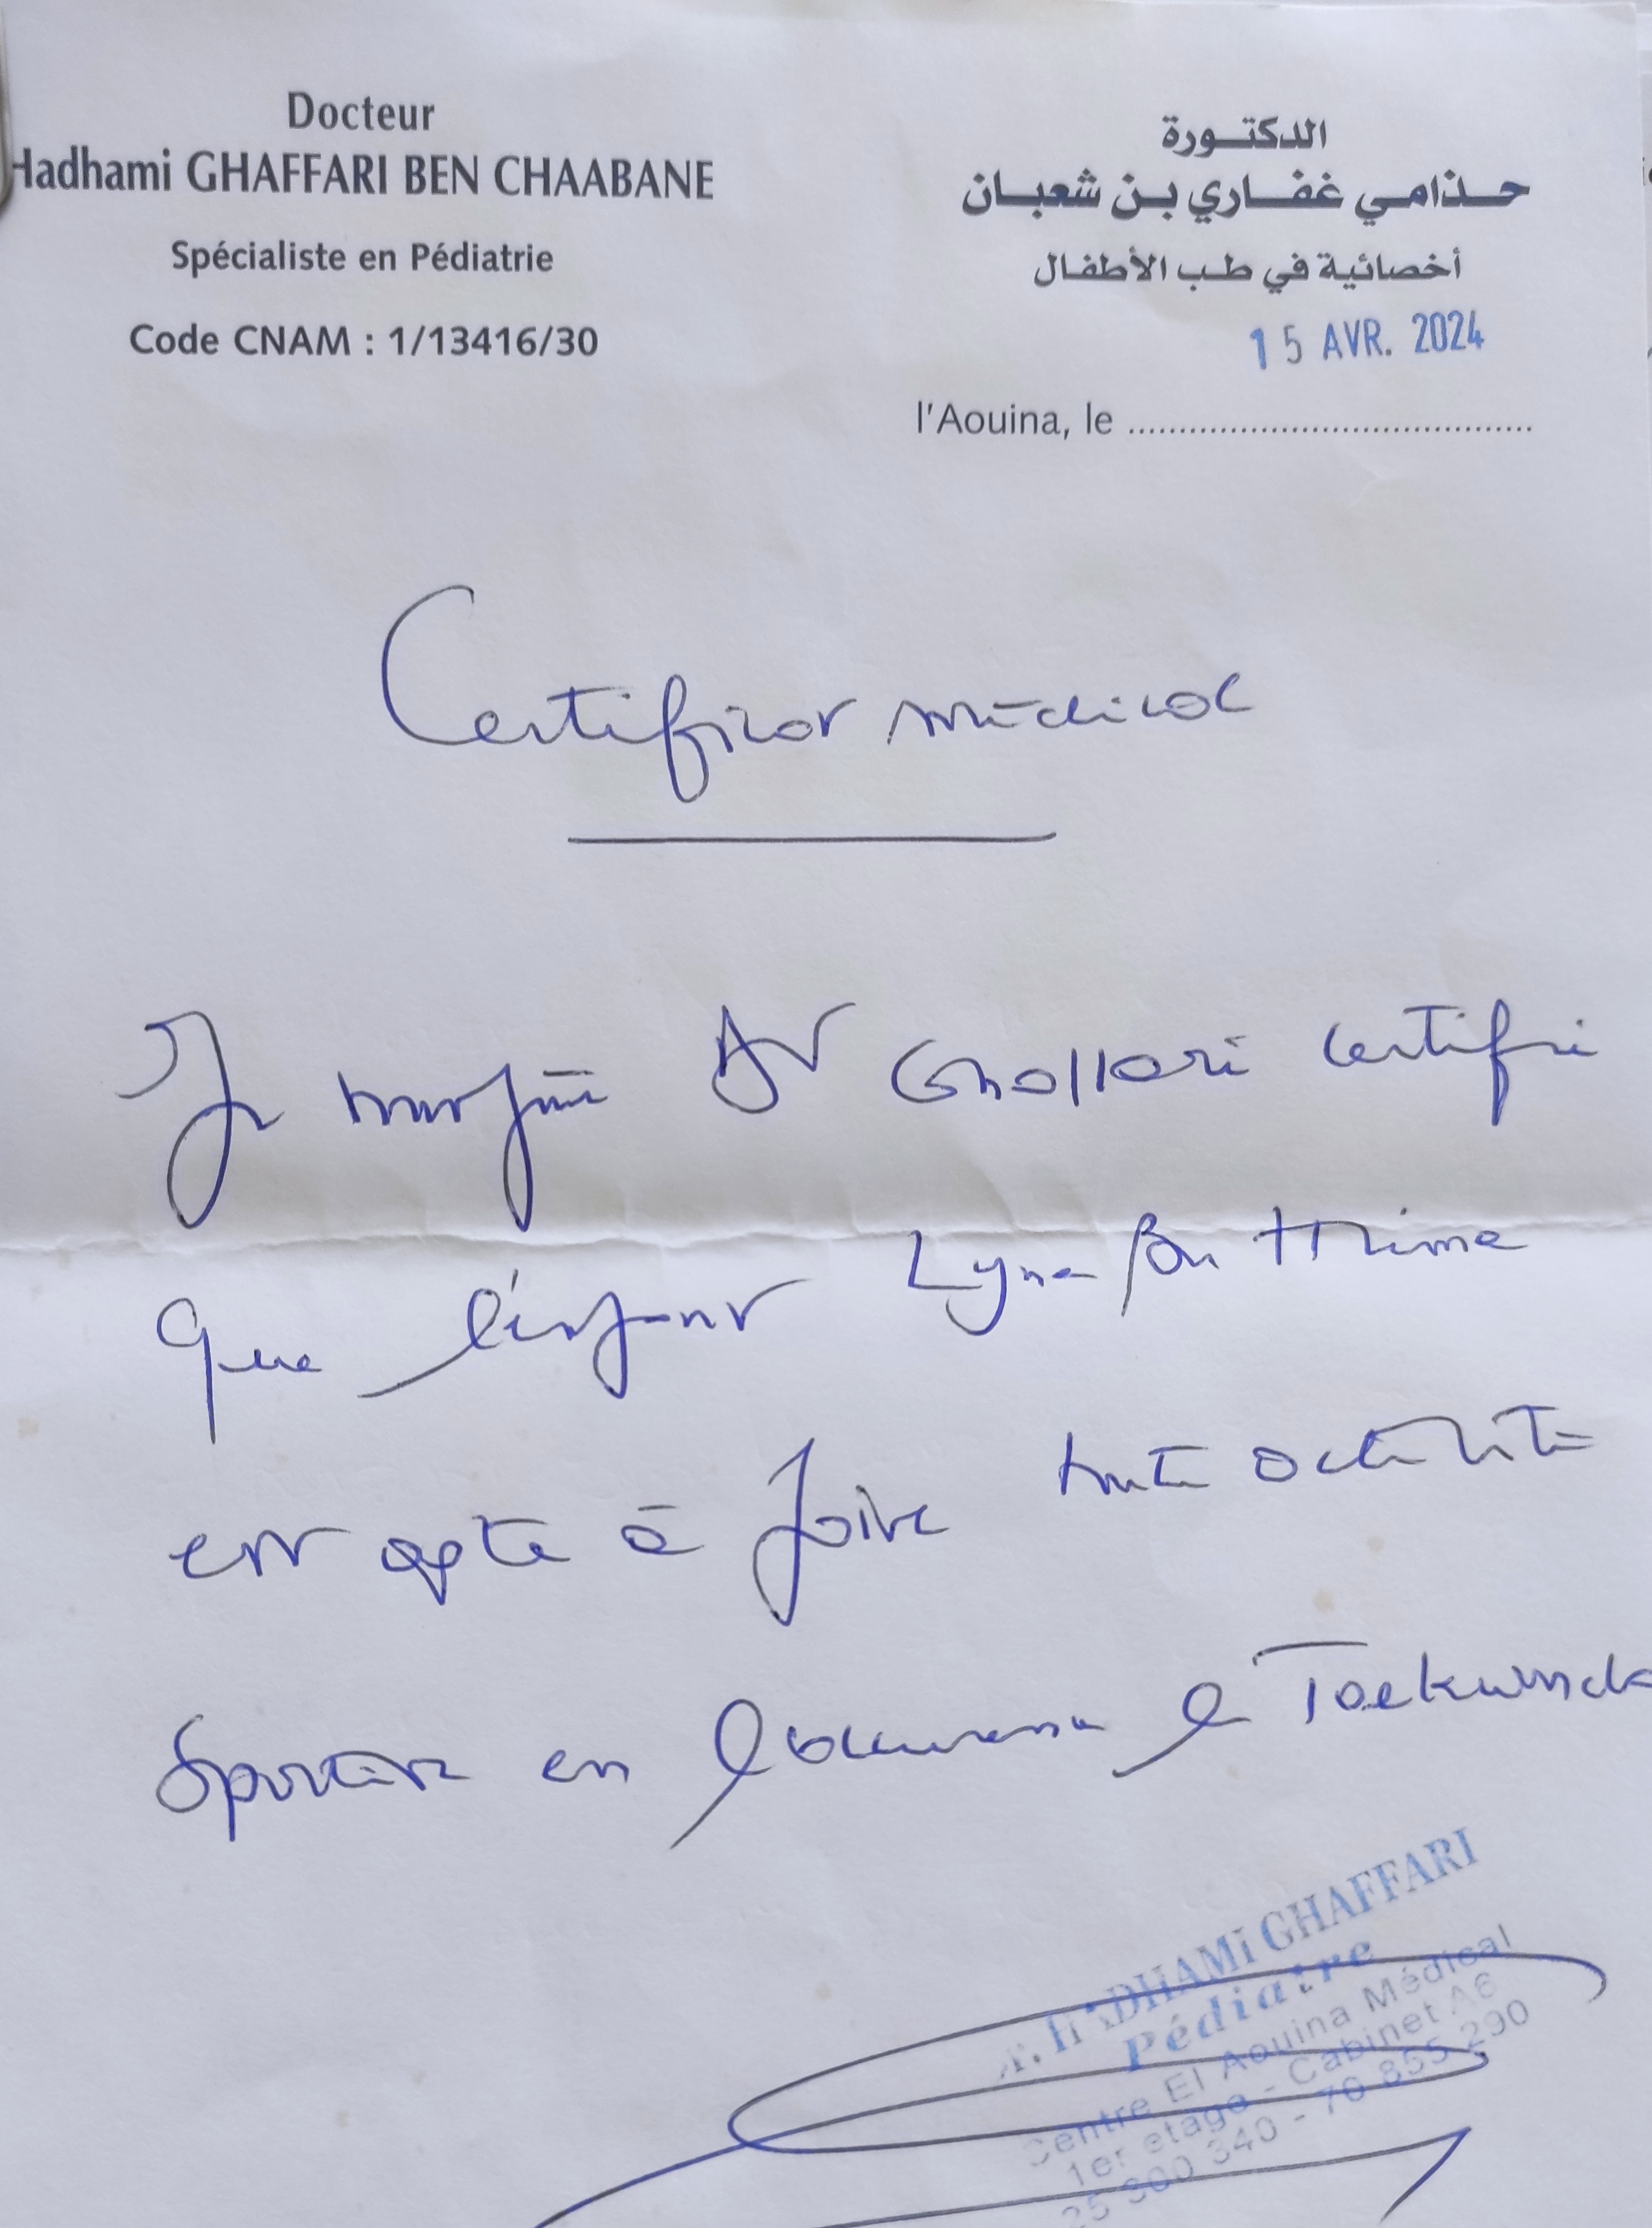 Docteur
Hadhami GHAFFARI BEN CHAABANE
Spécialiste en Pédiatrie
Code CNAM : 1/13416/30
الدكتورة
حذامي غفاري بن شعبان
أخصائية في طب الأطفال
15 AVR. 2024
l'Aouina, le ........................................
Certificat médical
Je soussigné Dr Ghaffari certifie
que l'enfant Lyna Ben
est apte à faire toute activité
Sportive en l'occurence le Taekwondo
HADHAMI GHAFFARI
Pédiatre
Centre El Aouina Médical
1er etage - Cabinet A6
25 300 340 - 70 855 290